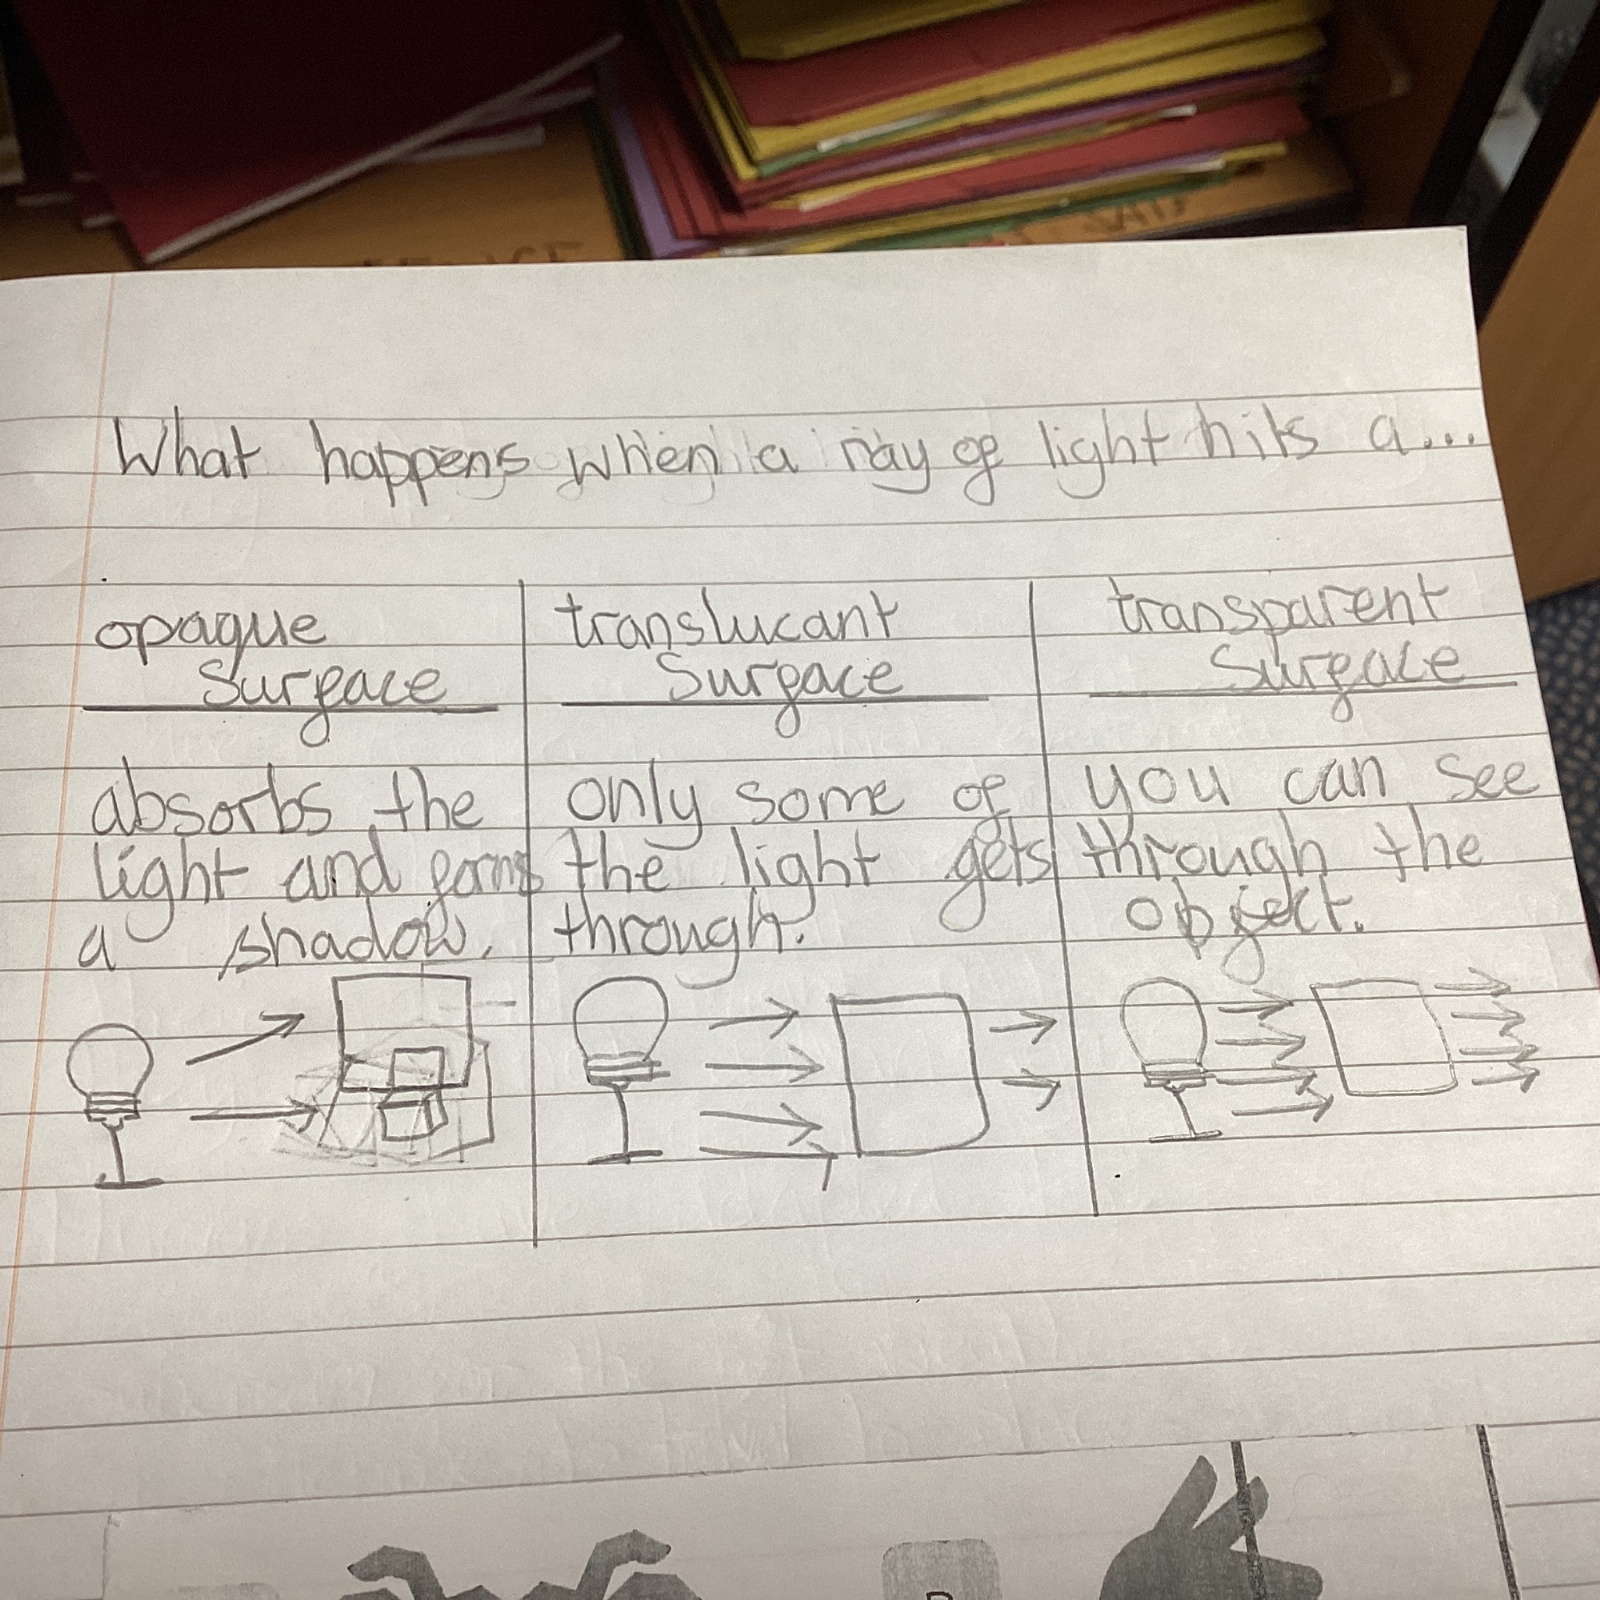 What happens when a ray of light hits a...
opaque
Surface
translucant
Surface
transparent
Surface
absorbs the
light and forms
a shadow.
only some of
the light gets
through.
you can see
through the
object.